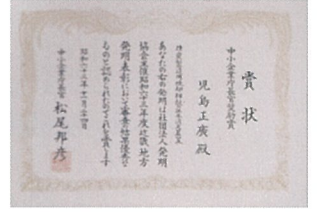 賞状
中小企業庁長官奨励賞
児島正廣殿
あなたの右の発明は社団法人発明
協会主催昭和六十三年度近畿地方
発明表彰において審査の結果優秀な
ものと認められたのでこれを賞します
昭和六十三年十一月二十四日
中小企業庁長官
松尾邦彦